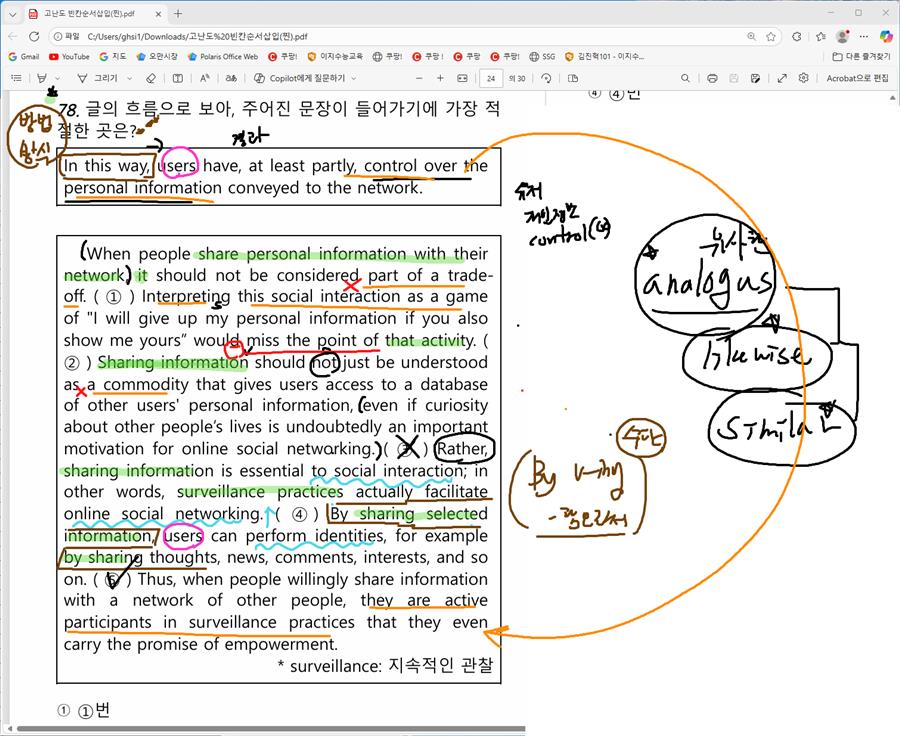 고난도 빈칸순서삽입(찐).pdf
파일 C:/Users/ghsi1/Downloads/고난도%20빈칸순서삽입(찐).pdf
Gmail YouTube 지도 오만시장 Polaris Office Web 쿠팡! 이지수능교육 쿠팡! 쿠팡! 쿠팡 쿠팡! SSG 김진혁101 - 이지수... 다른 즐겨찾기
그리기 Copilot에게 질문하기 24 의 30 Acrobat으로 편집
④ ④번
78. 글의 흐름으로 보아, 주어진 문장이 들어가기에 가장 적
절한 곳은?
방법
방식
결과
In this way, users have, at least partly, control over the
personal information conveyed to the network.
유저
개인정보
control(o)
유사한
analogus
likewise
similar
수단
By v-ing
When people share personal information with their
network, it should not be considered part of a trade-
off. ( ① ) Interpreting this social interaction as a game
of "I will give up my personal information if you also
show me yours" would miss the point of that activity. (
② ) Sharing information should not just be understood
as a commodity that gives users access to a database
of other users' personal information, (even if curiosity
about other people's lives is undoubtedly an important
motivation for online social networking.) ( ③ ) Rather,
sharing information is essential to social interaction; in
other words, surveillance practices actually facilitate
online social networking. ( ④ ) By sharing selected
information, users can perform identities, for example
by sharing thoughts, news, comments, interests, and so
on. ( ⑤ ) Thus, when people willingly share information
with a network of other people, they are active
participants in surveillance practices that they even
carry the promise of empowerment.
* surveillance: 지속적인 관찰
① ①번